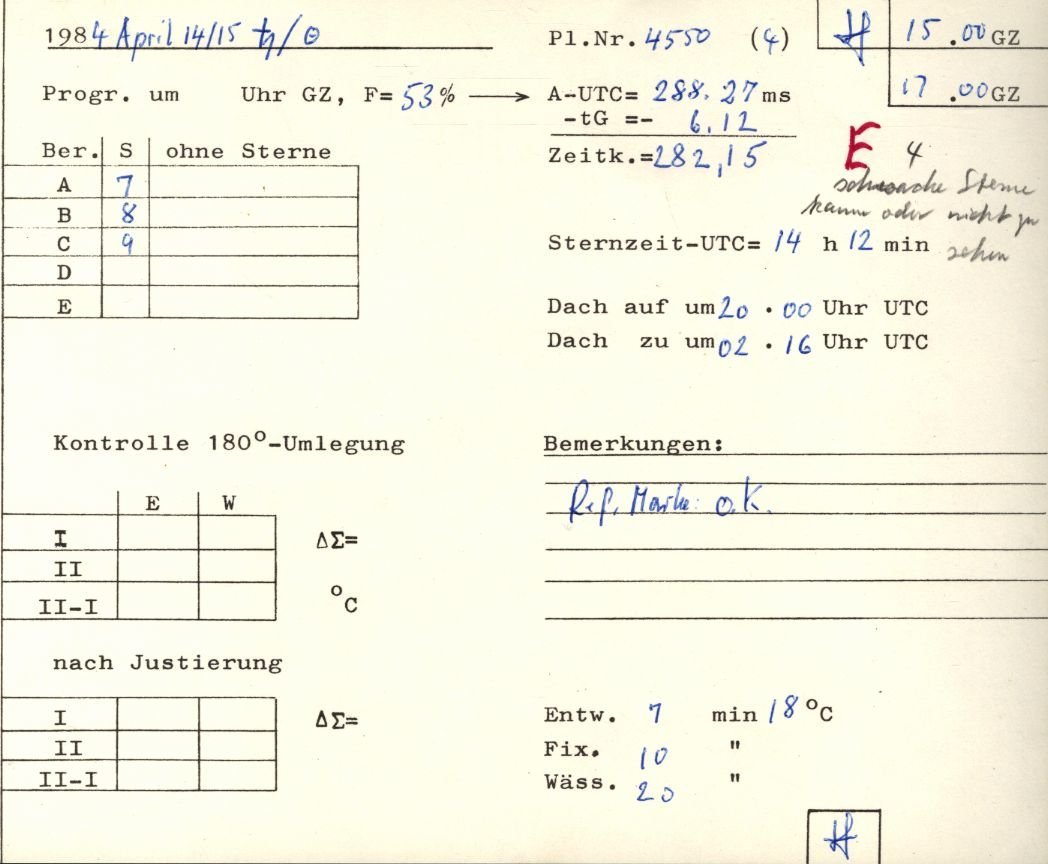 1984 April 14/15
Pl.Nr. 4550 (4)
15.00 GZ
17.00 GZ
Progr. um Uhr GZ, F= 53% ⟶ A-UTC= 288.27 ms
-tG =- 6.12
Zeitk.=282,15
E 4
schwache Sterne
kaum oder nicht zu
sehen
Ber. S ohne Sterne
A 7
B 8
C 9
D
E
Sternzeit-UTC= 14 h 12 min
Dach auf um 20 . 00 Uhr UTC
Dach zu um 02 . 16 Uhr UTC
Kontrolle 180°-Umlegung
E W
I ΔΣ=
II
II-I °C
Bemerkungen:
Ref. Marke: o.k.
nach Justierung
I ΔΣ=
II
II-I
Entw. 7 min 18 °C
Fix. 10 "
Wäss. 20 "